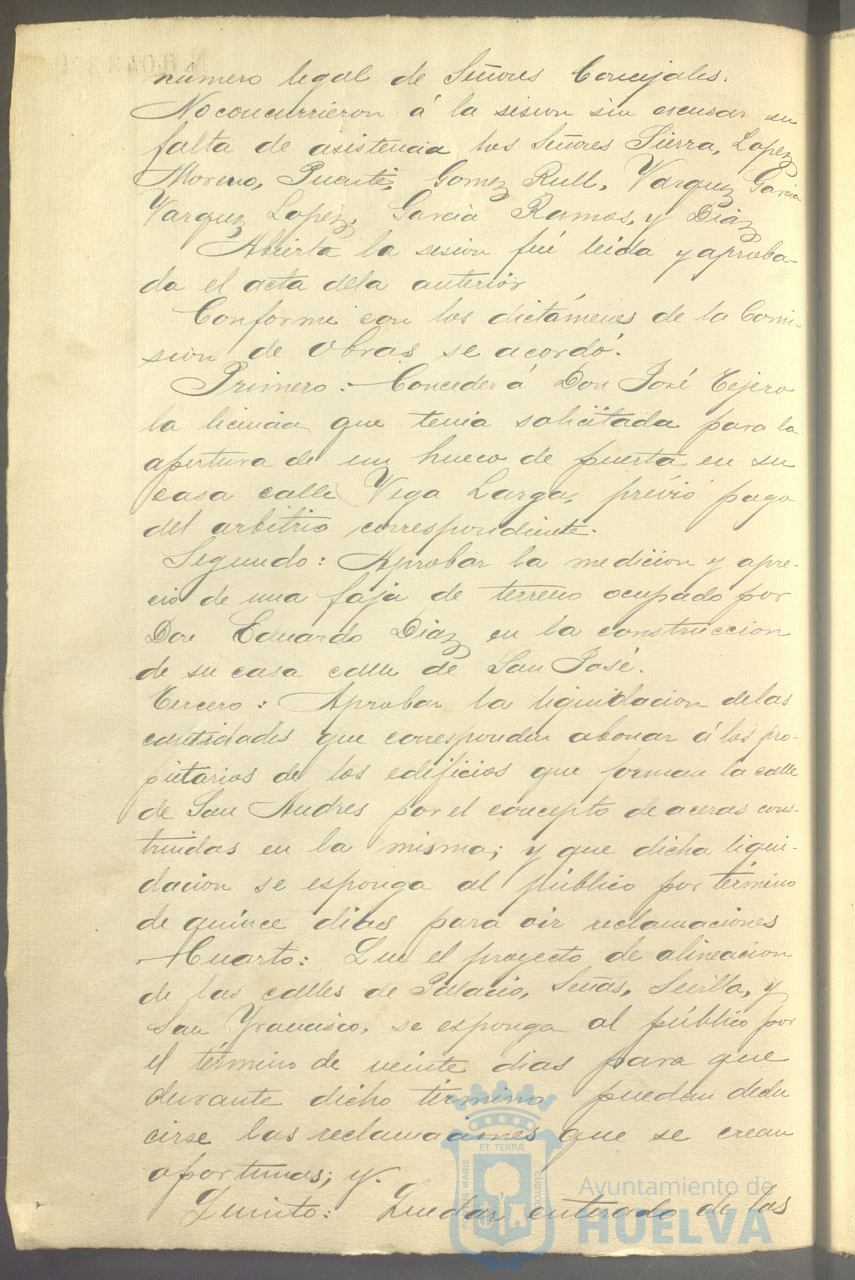 número legal de Señores Concejales.
No concurrieron á la sesion sin escusar su
falta de asistencia los Señores Sierra, Lopez
Moreno, Puente, Gomez Rull, Vazquez Garcia
Vazquez Lopez, Garcia Ramos, y Diaz
Abierta la sesion fué leida y aproba-
da el acta dela anterior
Conforme con los dictámenes de la Comi-
sion de Obras se acordó.
Primero: Conceder á Don José Tejero
la licencia que tenia solicitada para la
apertura de un hueco de puerta en su
casa calle Vega Larga, prévio pago
del arbitrio correspondiente.
Segundo: Aprobar la medicion y apre-
cio de una faja de terreno ocupado por
Don Eduardo Diaz en la construccion
de su casa calle de San José.
Tercero: Aprobar la liquidacion delas
cantidades que corresponden abonar á los pro-
pietarios de los edificios que forman la calle
de San Andres por el concepto de aceras cons-
truidas en la misma; y que dicha liqui-
dacion se esponga al público por término
de quince dias para oir reclamaciones
Cuarto: Que el proyecto de alineacion
de las calles de Palacio, Señas, Sevilla, y
San Francisco, se esponga al público por
el término de veinte dias para que
durante dicho término puedan dedu
cirse las reclamaciones que se crean
oportunas; y.
Quinto: Quedar enterado de las
ET TERRÆ
MARIS
CUSTODIA
Ayuntamiento de
HUELVA